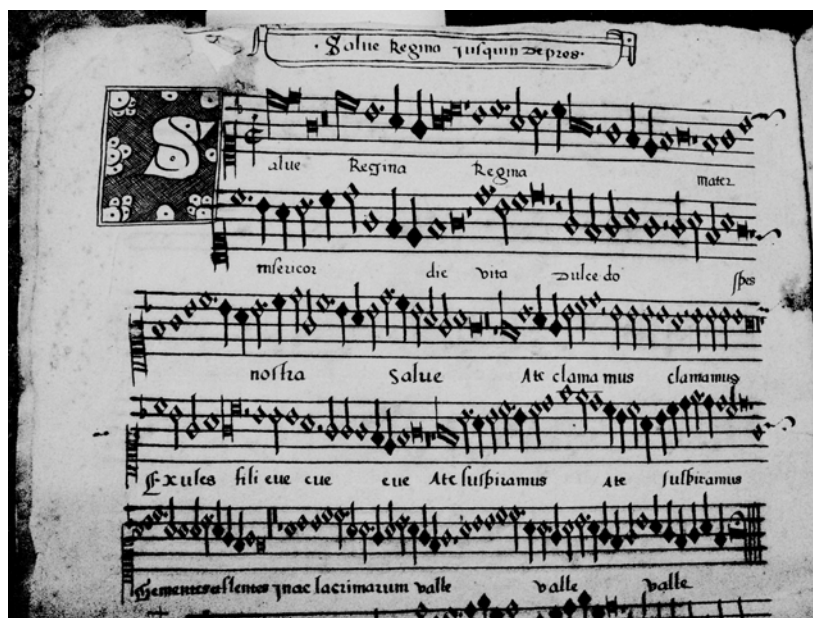 · Salue Regina Jusquin depres ·
S
alue Regina Regina mater
misericor die vita dulce do spes
nostra Salue Ate clama mus clamamus
Exules fili eue eue eue Ate suspiramus Ate suspiramus
Gementes et flentes jnac lacrimarum valle valle valle